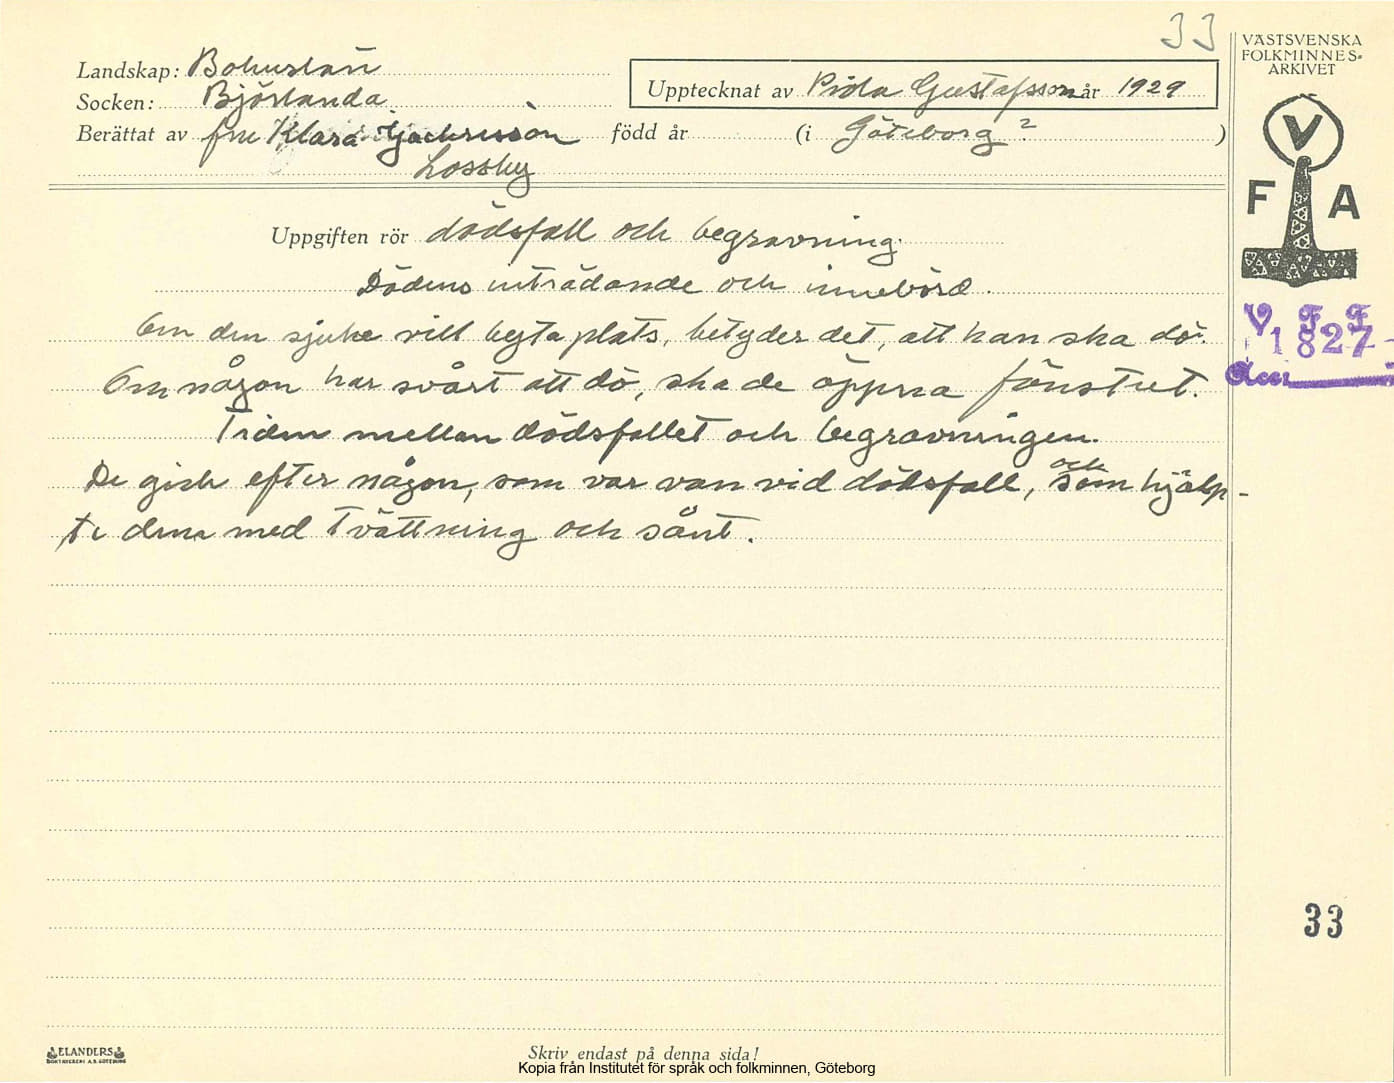 33
VÄSTSVENSKA
FOLKMINNES-
ARKIVET
Landskap: Bohuslän
Socken: Björlanda
Upptecknat av Gustafsson år 1929
Berättat av fru Klara född år (i Göteborg ? )
Lossby
V
F A
Uppgiften rör dödsfall och begravning.
Dödens inträdande och innebörd.
V. F. F.
1827
Om den sjuke vill byta plats, betyder det, att han ska dö.
Om någon har svårt att dö, ska de öppna fönstret.
Tiden mellan dödsfallet och begravningen.
De gick efter någon, som var van vid dödsfall, och som hjälp-
te dem med tvättning och sånt.
33
ELANDERS
BOKTRYCKERI A.B. GÖTEBORG
Skriv endast på denna sida!
Kopia från Institutet för språk och folkminnen, Göteborg